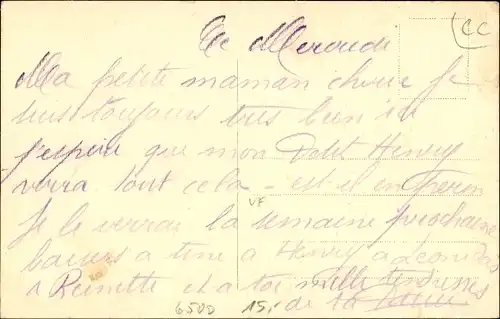 CC
Ce Mercredi
Ma petite maman cherie Je
suis toujours très bien ici
j'espère que mon Petit Henry
verra tout cela - est il en
Je le verrai la semaine prochaine
VF
baisers a tine a Henry a
a Reinette et a toi mille tendresses
6500 15,- de ta